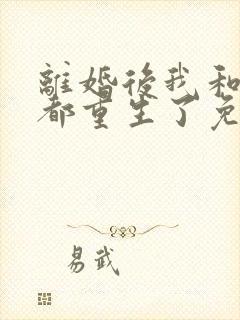 離婚後我和
都重生了免
易武